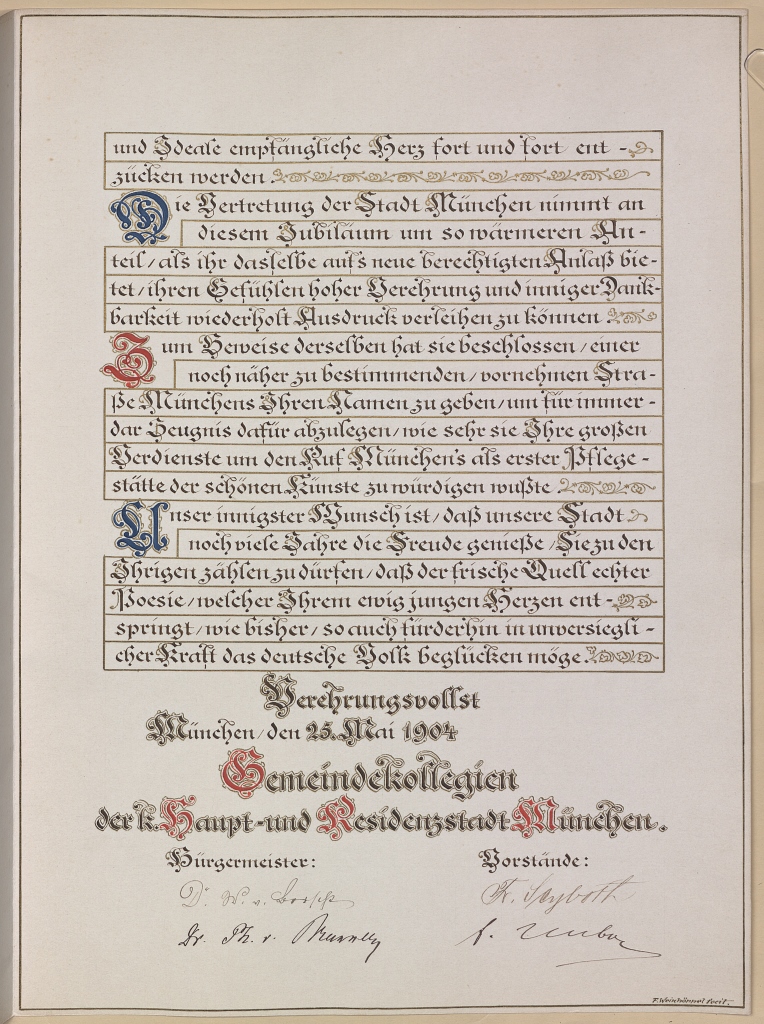 und Ideale empfängliche Herz fort und fort ent -
zücken werden.
Die Vertretung der Stadt München nimmt an
diesem Jubiläum um so wärmeren An-
teil, als ihr dasselbe auf's neue berechtigten Anlaß bie-
tet, ihren Gefühlen hoher Verehrung und inniger Dank-
barkeit wiederholt Ausdruck verleihen zu können.
Zum Beweise derselben hat sie beschlossen, einer
noch näher zu bestimmenden, vornehmen Stra-
ße Münchens Ihren Namen zu geben, um für immer-
dar Zeugnis dafür abzulegen, wie sehr sie Ihre großen
Verdienste um den Ruf München's als erster Pflege-
stätte der schönen Künste zu würdigen wußte.
Unser innigster Wunsch ist, daß unsere Stadt
noch viele Jahre die Freude genieße, Sie zu den
Ihrigen zählen zu dürfen, daß der frische Quell echter
Poesie, welcher Ihrem ewig jungen Herzen ent-
springt, wie bisher, so auch fürderhin in unversiegli-
cher Kraft das deutsche Volk beglücken möge.
Verehrungsvollst
München, den 25. Mai 1904
Gemeindekollegien
der k. Haupt- und Residenzstadt München.
Bürgermeister: Vorstände:
Dr. W. v. Borscht F. Seyboth
Dr. Ph. v. Brunner
F. Weinhöppel fecit.